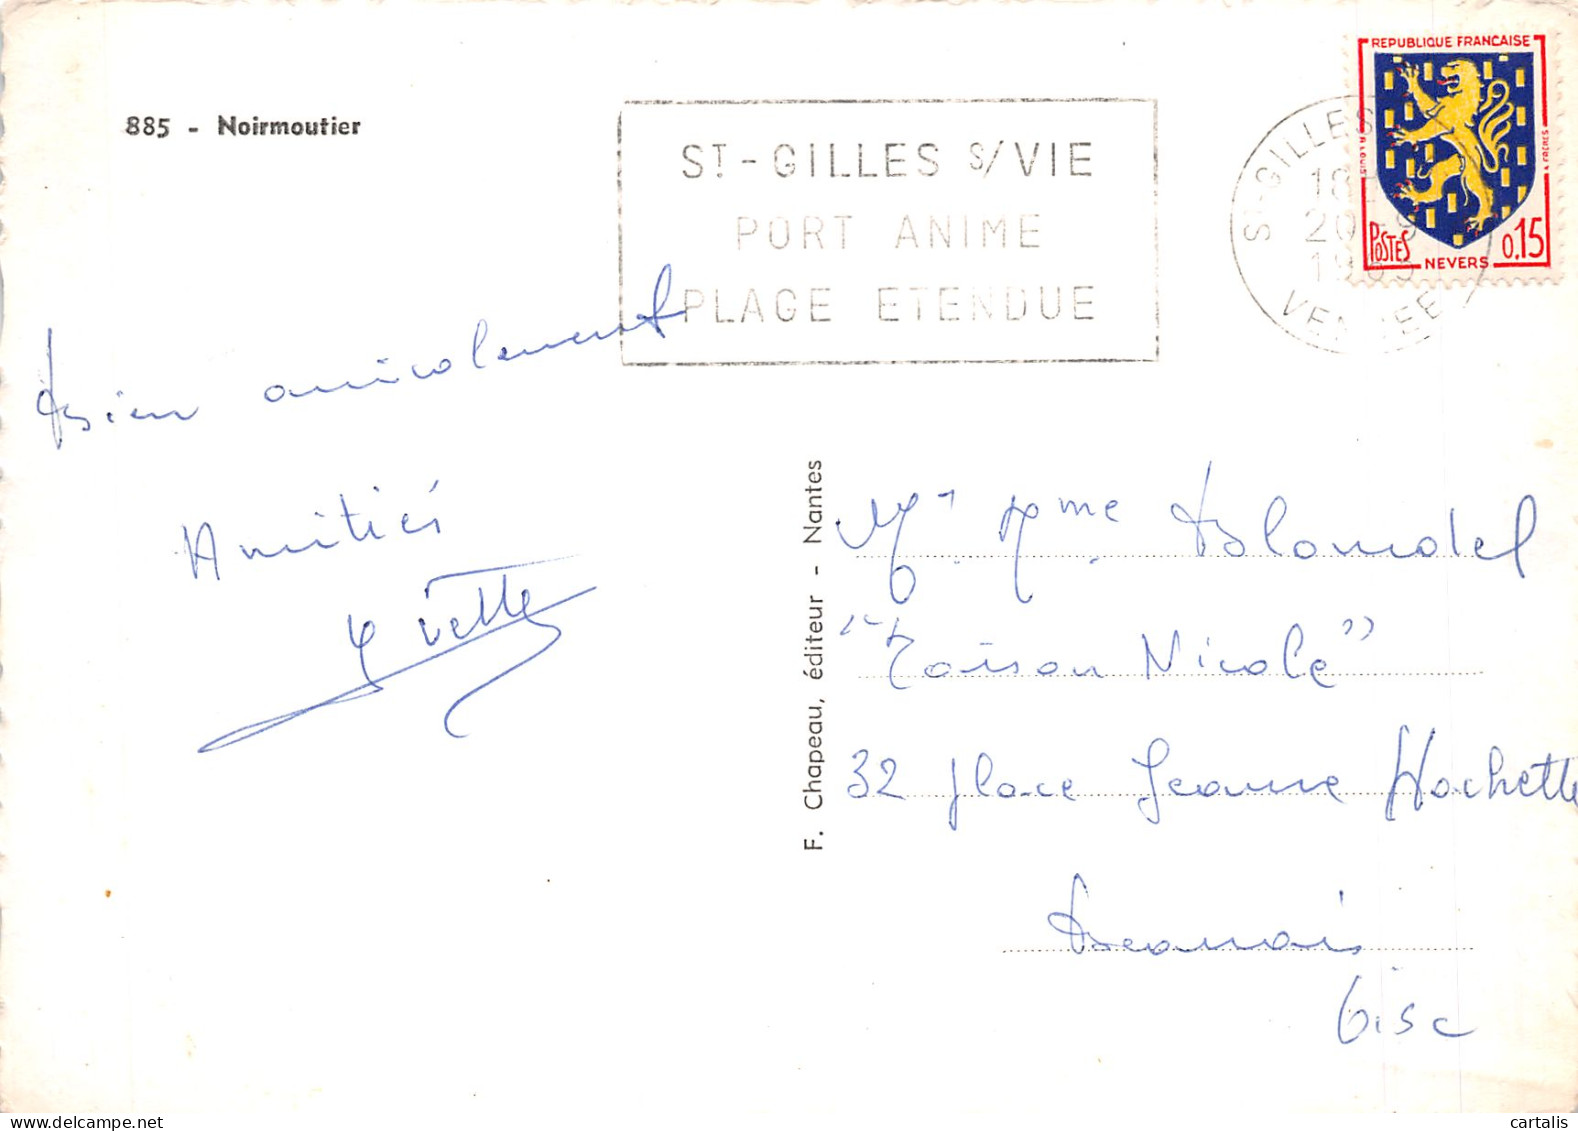 885 - Noirmoutier
ST-GILLES S/VIE
PORT ANIME
PLAGE ETENDUE
ST-GILLES
20-9
VENDEE
REPUBLIQUE FRANCAISE
POSTES
NEVERS
0,15
Bien amicalement
Amitiés
Yvette
F. Chapeau, éditeur - Nantes
Mr Mme Blondel
"Maison Nicole"
32 place Jeanne Hachette
Beauvais
Oise
cartalis